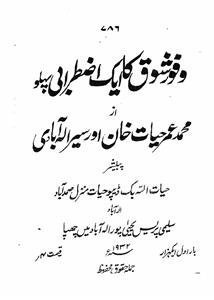 ۷۸۶
وفور شوق کا ایک اضطرابی پہلو
از
محمد عمر حیات خان اور سیر الہ آبادی
پبلیشر
حیات السٹریک ڈپو حیات منزل صمدآباد
الہ آباد
سلیمی پریس یحیٰی پور الہ آباد میں چھپا
بار اول ایکہزار ۱۹۳۲ء قیمت ۴ر
جملہ حقوق محفوظ